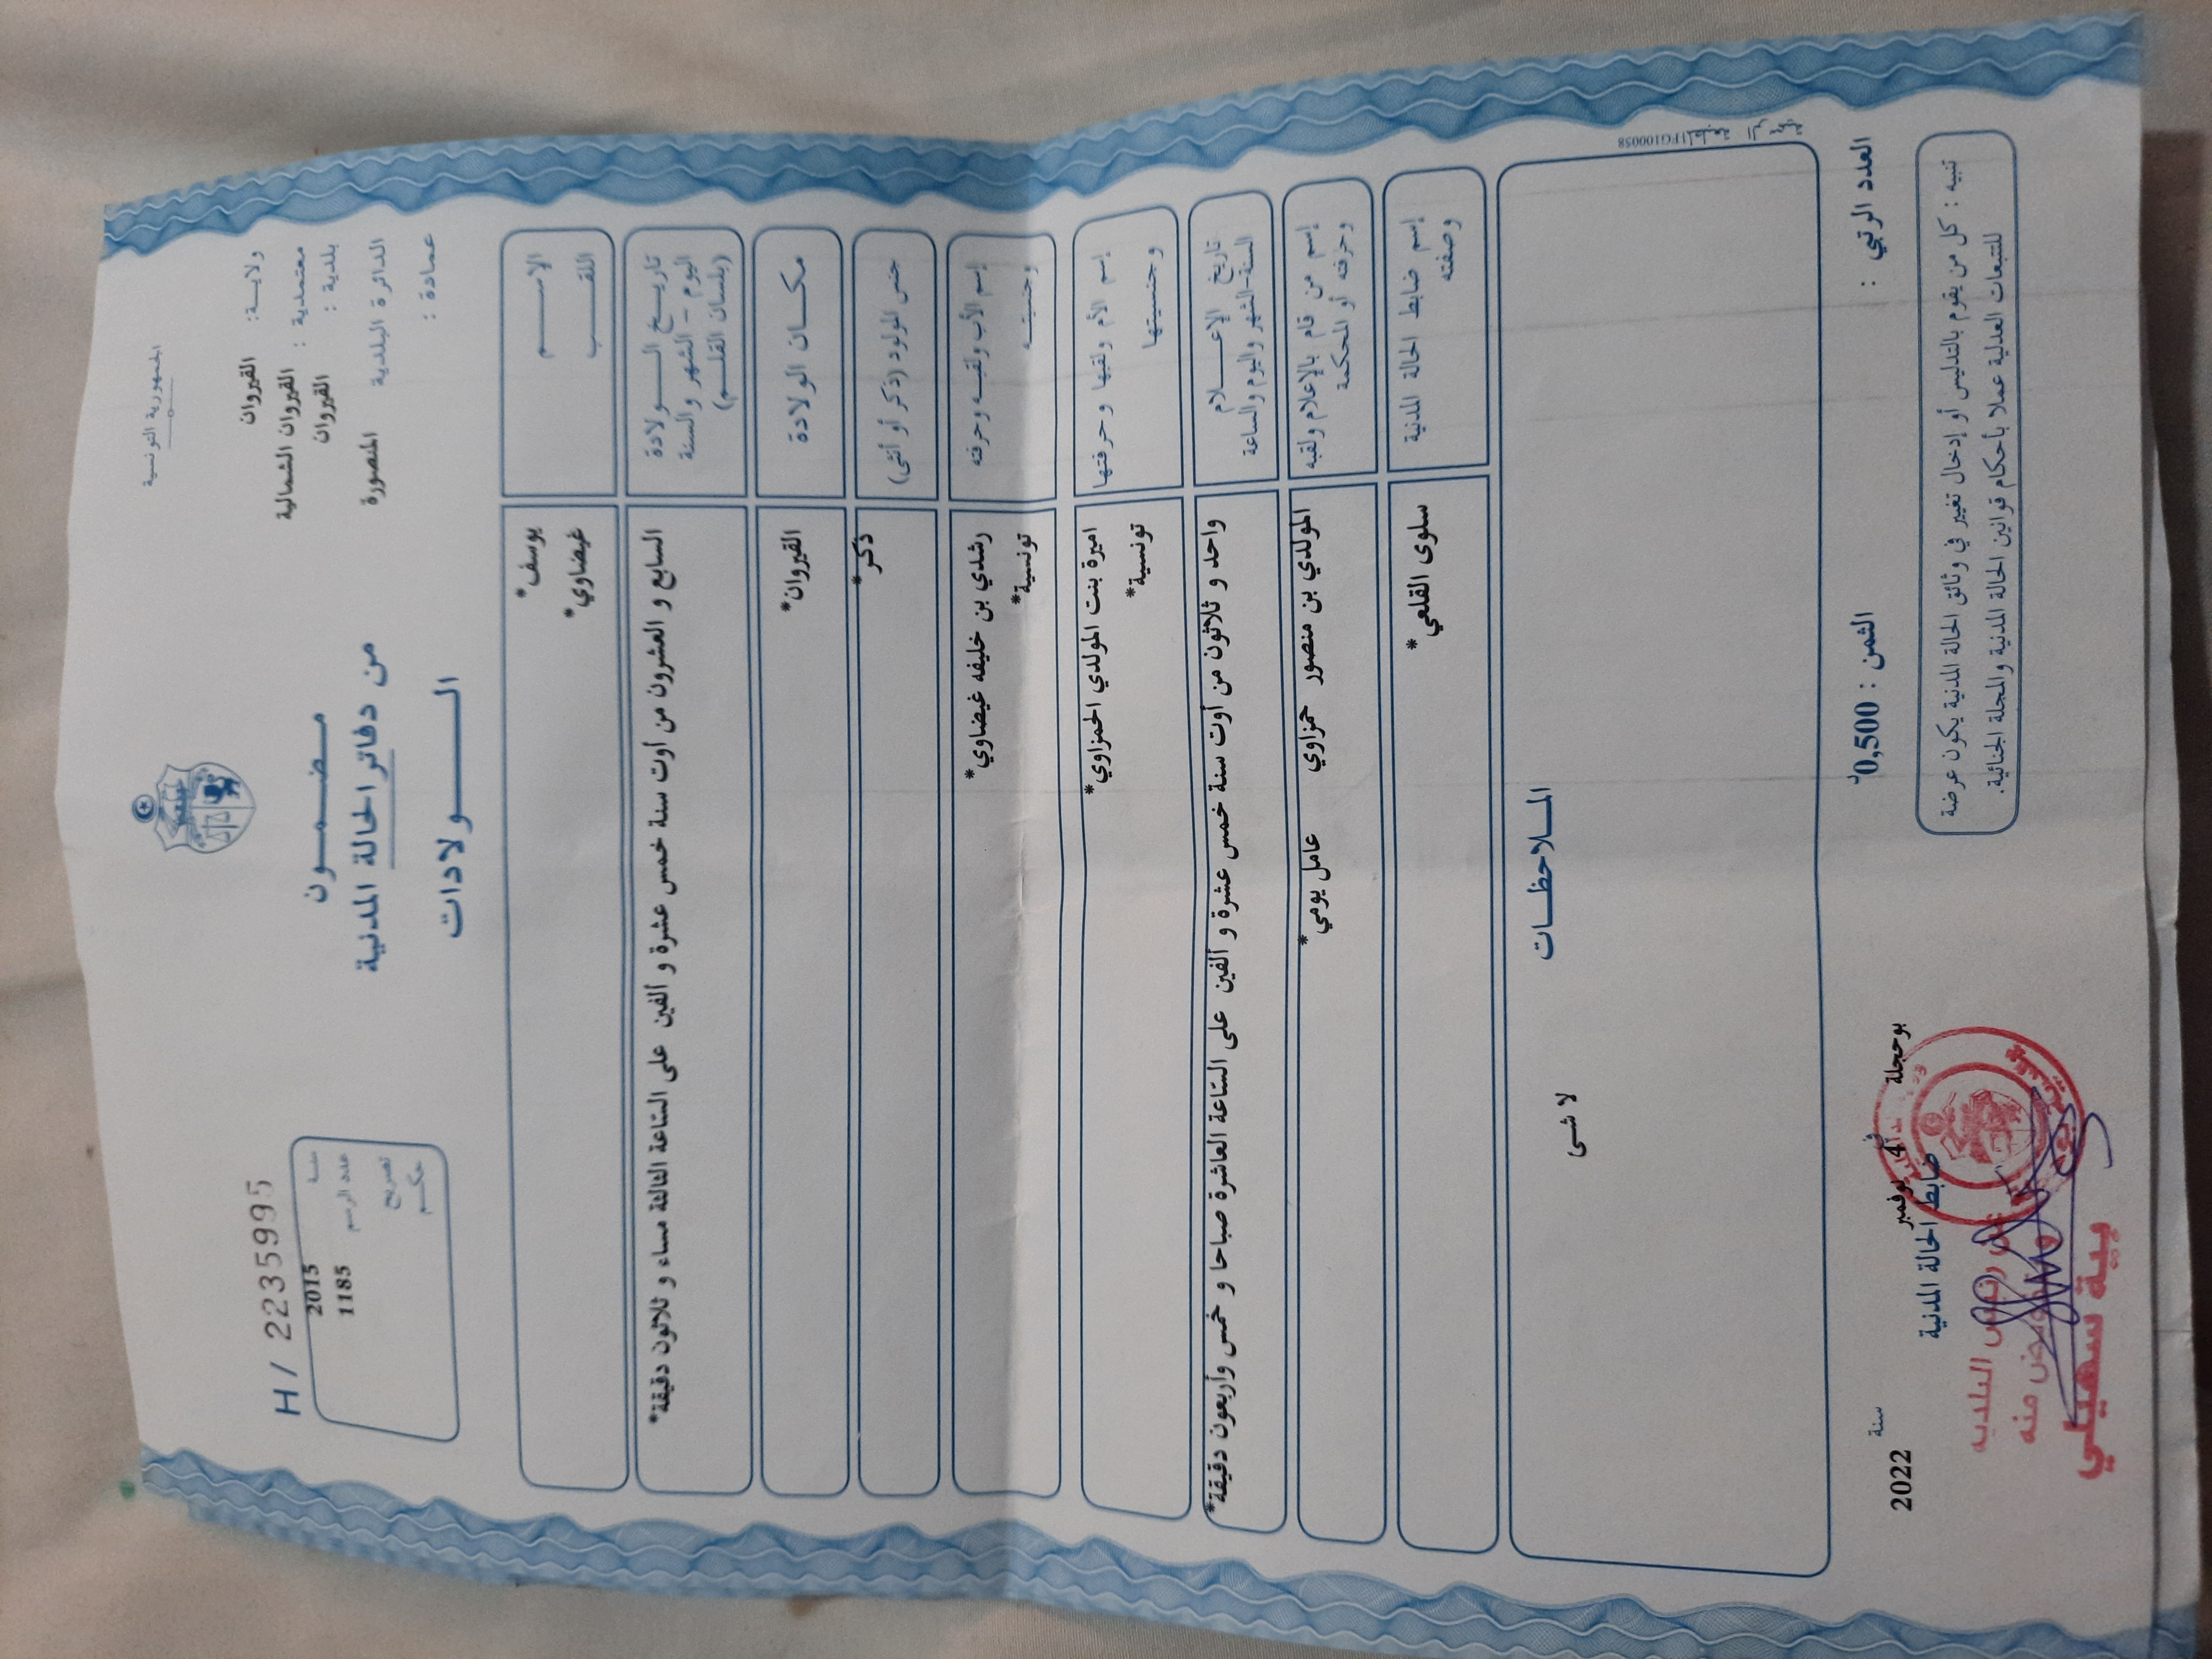 الجمهورية التونسية
ولايـة: القيروان
معتمدية : القيروان الشمالية
بلدية : القيروان
الدائرة البلدية المنصورة
عمادة :
مضمــون
من دفاتر الحالة المدنية
الـــولادات
H/ 2235995
سنة 2015
عدد الرسم 1185
تصريح
حكــم
الإســـم يوسف*
اللقـــب غيضاوي*
تاريــخ الـــولادة
اليوم - الشهر والسنة
(بلسان القلــم)
السابع و العشرون من أوت سنة خمس عشرة و ألفين على الساعة الثالثة مساء و ثلاثون دقيقة*
مكــان الولادة القيروان*
جنس المولود (ذكر أو أنثى) ذكر*
إسم الأب ولقبــه وحرفته رشدي بن خليفه غيضاوي*
وجنسيتــه تونسية*
إسم الأم ولقبها وحرفتها اميرة بنت المولدي الحمزاوي*
وجنسيتها تونسية*
تاريخ الإعـــلام
السنة-الشهر واليوم والساعة
واحد و ثلاثون من أوت سنة خمس عشرة و ألفين على الساعة العاشرة صباحا و خمس وأربعون دقيقة*
إسم من قام بالإعلام ولقبه
وحرفته أو المحكمة
المولدي بن منصور حمزاوي عامل يومي*
إسم ضابط الحالة المدنية
وصفته
سلوى القلعي*
المــلاحظــات
لا شى
1FG100058
العدد الرتبي :
الثمن : 0,500د
بوحجلة في 4 نوفمبر سنة 2022
ضابط الحالة المدنية
عن رئيس البلدية
منه
بية سهيلي
تنبيه : كل من يقوم بالتدليس أو إدخال تغيير في وثائق الحالة المدنية يكون عرضة
للتتبعات العدلية عملا بأحكام قوانين الحالة المدنية والمجلة الجنائية.